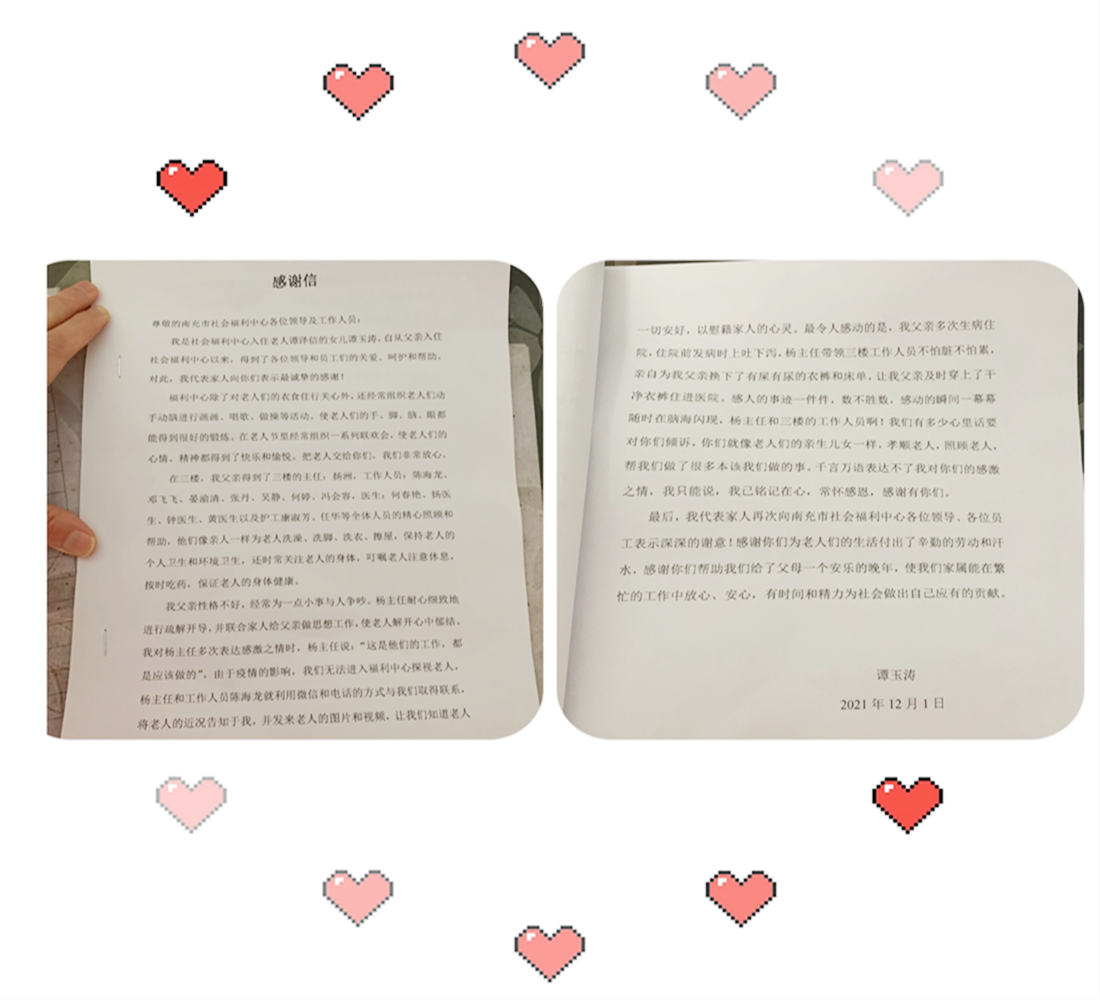 感谢信
尊敬的南充市社会福利中心各位领导及工作人员：
我是社会福利中心入住老人谭洋信的女儿谭玉涛，自从父亲入住
社会福利中心以来，得到了各位领导和员工们的关爱、呵护和帮助。
对此，我代表家人向你们表示最诚挚的感谢！
福利中心除了对老人们的衣食住行关心外，还经常组织老人们动
手动脑进行画画、唱歌、做操等活动，使老人们的手、脚、脑、眼都
能得到很好的锻炼。在老人节里经常组织一系列联欢会，使老人们的
心情、精神都得到了快乐和愉悦。把老人交给你们，我们非常放心。
在三楼，我父亲得到了三楼的主任：扬洲，工作人员：陈海龙、
邓飞飞、晏渝清、张丹、吴静、何婷、冯会容，医生：何春艳、扬医
生、钟医生、黄医生以及护工康淑芳、任华等全体人员的精心照顾和
帮助，他们像亲人一样为老人洗澡、洗脚、洗衣、擦屋，保持老人的
个人卫生和环境卫生，还时常关注老人的身体，叮嘱老人注意休息，
按时吃药，保证老人的身体健康。
我父亲性格不好，经常为一点小事与人争吵。杨主任耐心细致地
进行疏解开导，并联合家人给父亲做思想工作，使老人解开心中郁结。
我对杨主任多次表达感激之情时，杨主任说：“这是他们的工作，都
是应该做的”。由于疫情的影响，我们无法进入福利中心探视老人，
杨主任和工作人员陈海龙就利用微信和电话的方式与我们取得联系，
将老人的近况告知于我，并发来老人的图片和视频，让我们知道老人
一切安好，以慰籍家人的心灵。最令人感动的是，我父亲多次生病住
院，住院前发病时上吐下泻，杨主任带领三楼工作人员不怕脏不怕累，
亲自为我父亲换下了有屎有尿的衣裤和床单，让我父亲及时穿上了干
净衣裤住进医院。感人的事迹一件件，数不胜数，感动的瞬间一幕幕
随时在脑海闪现，杨主任和三楼的工作人员啊！我们有多少心里话要
对你们倾诉，你们就像老人们的亲生儿女一样，孝顺老人，照顾老人，
帮我们做了很多本该我们做的事。千言万语表达不了我对你们的感激
之情，我只能说，我已铭记在心，常怀感恩，感谢有你们。
最后，我代表家人再次向南充市社会福利中心各位领导、各位员
工表示深深的谢意！感谢你们为老人们的生活付出了辛勤的劳动和汗
水，感谢你们帮助我们给了父母一个安乐的晚年，使我们家属能在繁
忙的工作中放心、安心，有时间和精力为社会做出自己应有的贡献。
谭玉涛
2021 年 12 月 1 日